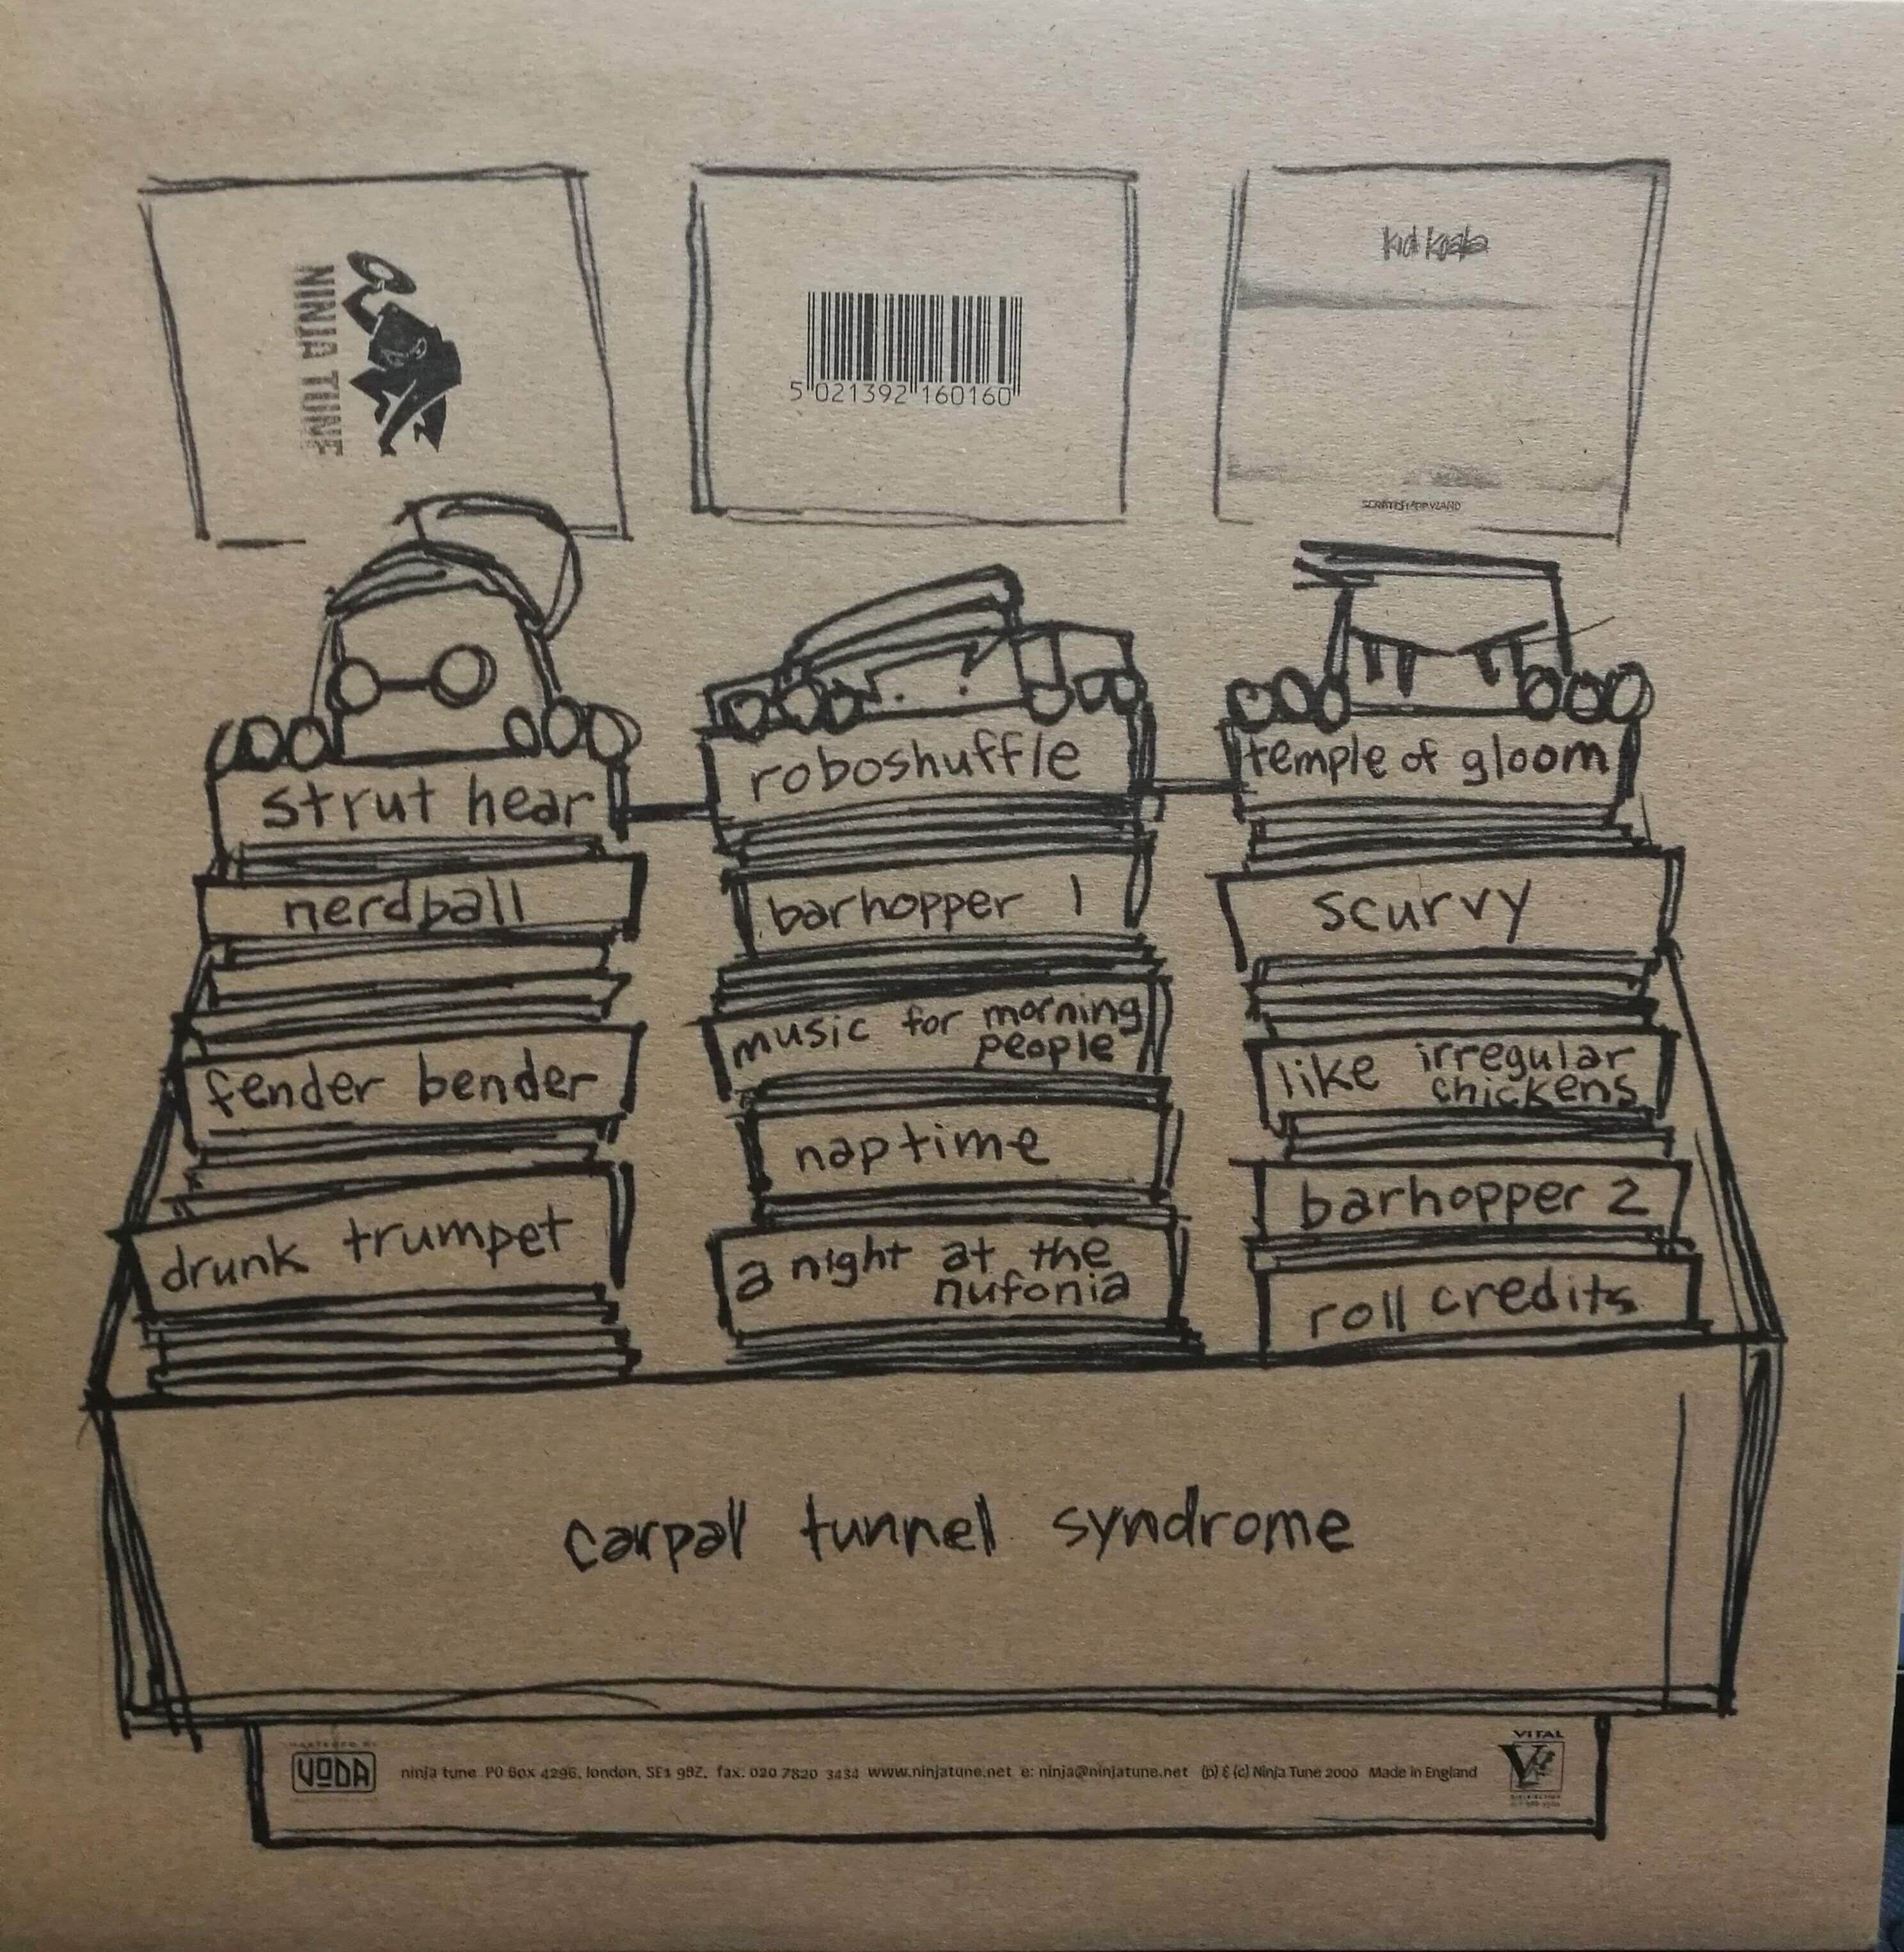 NINJA TUNE
5 021392 160160
kid koala
strut hear
nerdball
fender bender
drunk trumpet
roboshuffle
barhopper 1
music for morning
people
naptime
a night at the
nufonia
temple of gloom
scurvy
like irregular
chickens
barhopper 2
roll credits
carpal tunnel syndrome
VODA
ninja tune PO Box 4296, london, SE1 9BZ, fax: 020 7820 3434 www.ninjatune.net e: ninja@ninjatune.net (p) & (c) Ninja Tune 2000 Made in England
VITAL